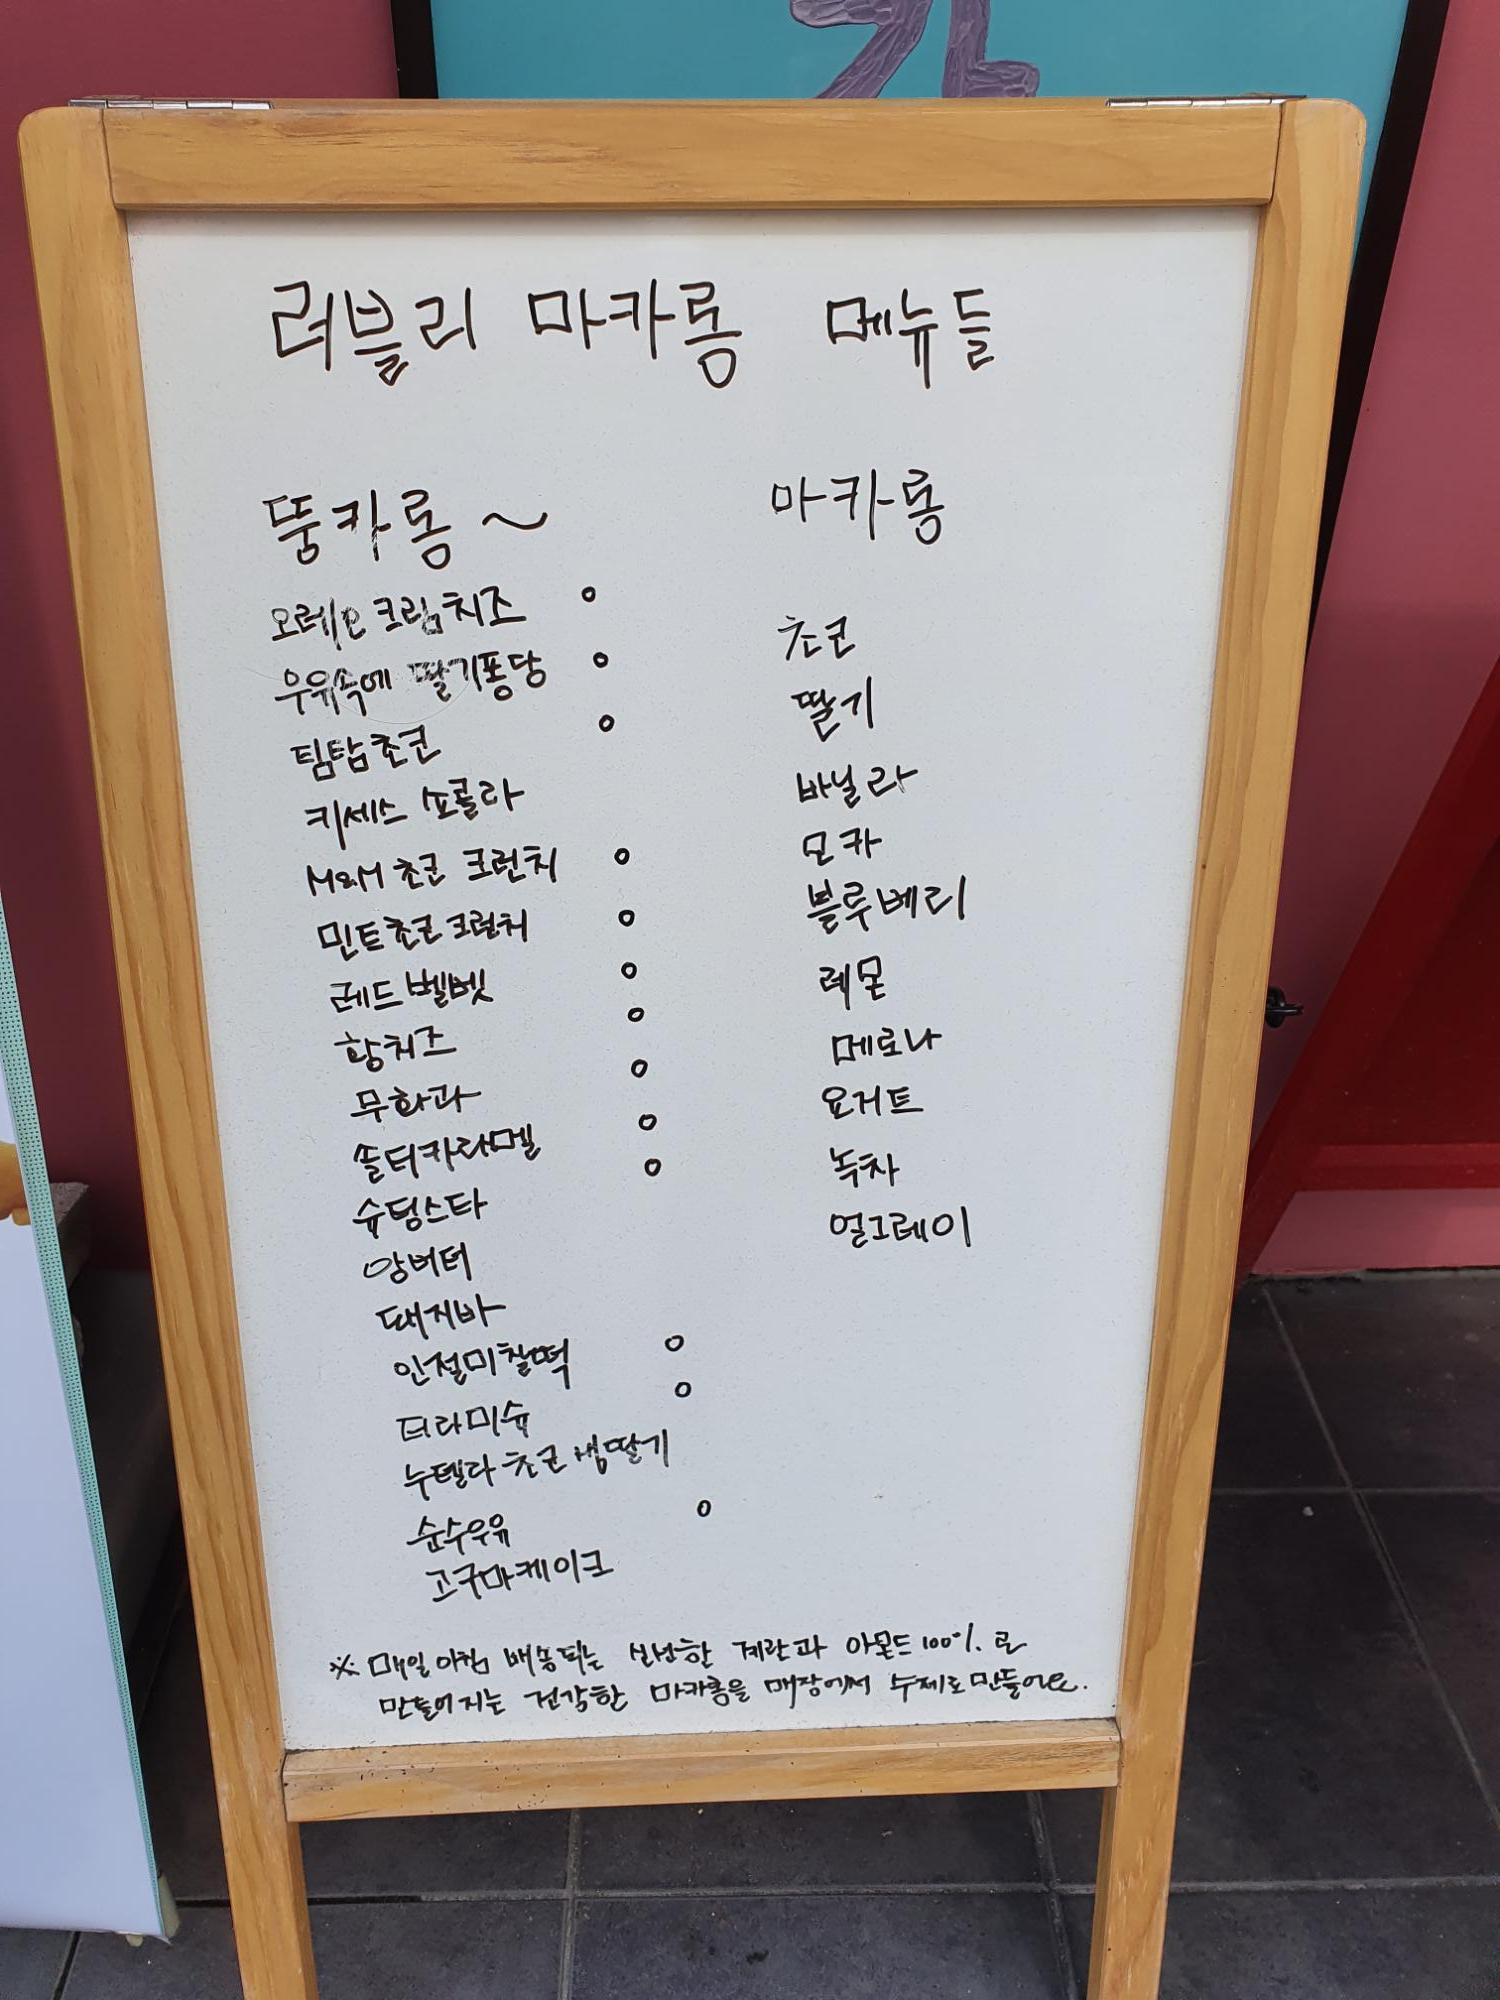 러블리 마카롱 메뉴들
뚱카롱~
오레오 크림치즈 o
우유속에 딸기퐁당 o
팀탐초코 o
키세스 쇼콜라
M&M 초코 크런치 o
민트초코크런치 o
레드벨벳 o
황치즈 o
무화과 o
솔티카라멜 o
슈팅스타 o
앙버터
돼지바
인절미찰떡 o
티라미슈 o
누텔라 초코 생딸기
순수우유 o
고구마케이크
마카롱
초코
딸기
바닐라
모카
블루베리
레몬
메로나
요거트
녹차
얼그레이
※ 매일아침 배송되는 신선한 계란과 아몬드 100%로
만들어지는 건강한 마카롱을 매장에서 수제로만들어요.